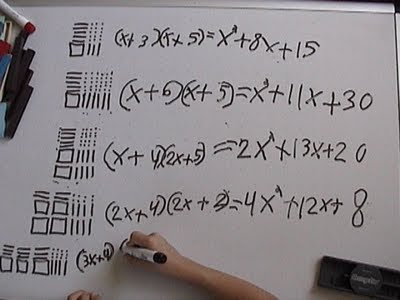 (x+3)(x+5)=x²+8x+15
(x+6)(x+5)=x²+11x+30
(x+4)(2x+5)=2x²+13x+20
(2x+4)(2x+2)=4x²+12x+8
(3x+4) (